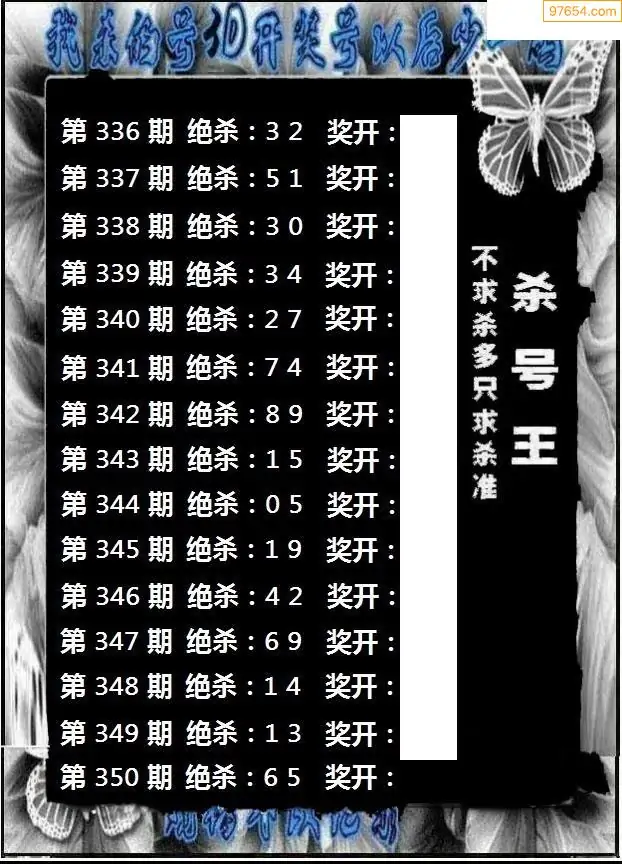 97654.com
我来的号3D开奖号以后少
第 336 期 绝杀：3 2 奖开：
第 337 期 绝杀：5 1 奖开：
第 338 期 绝杀：3 0 奖开：
第 339 期 绝杀：3 4 奖开：
第 340 期 绝杀：2 7 奖开：
第 341 期 绝杀：7 4 奖开：
第 342 期 绝杀：8 9 奖开：
第 343 期 绝杀：1 5 奖开：
第 344 期 绝杀：0 5 奖开：
第 345 期 绝杀：1 9 奖开：
第 346 期 绝杀：4 2 奖开：
第 347 期 绝杀：6 9 奖开：
第 348 期 绝杀：1 4 奖开：
第 349 期 绝杀：1 3 奖开：
第 350 期 绝杀：6 5 奖开：
杀号王
不求杀多只求杀准